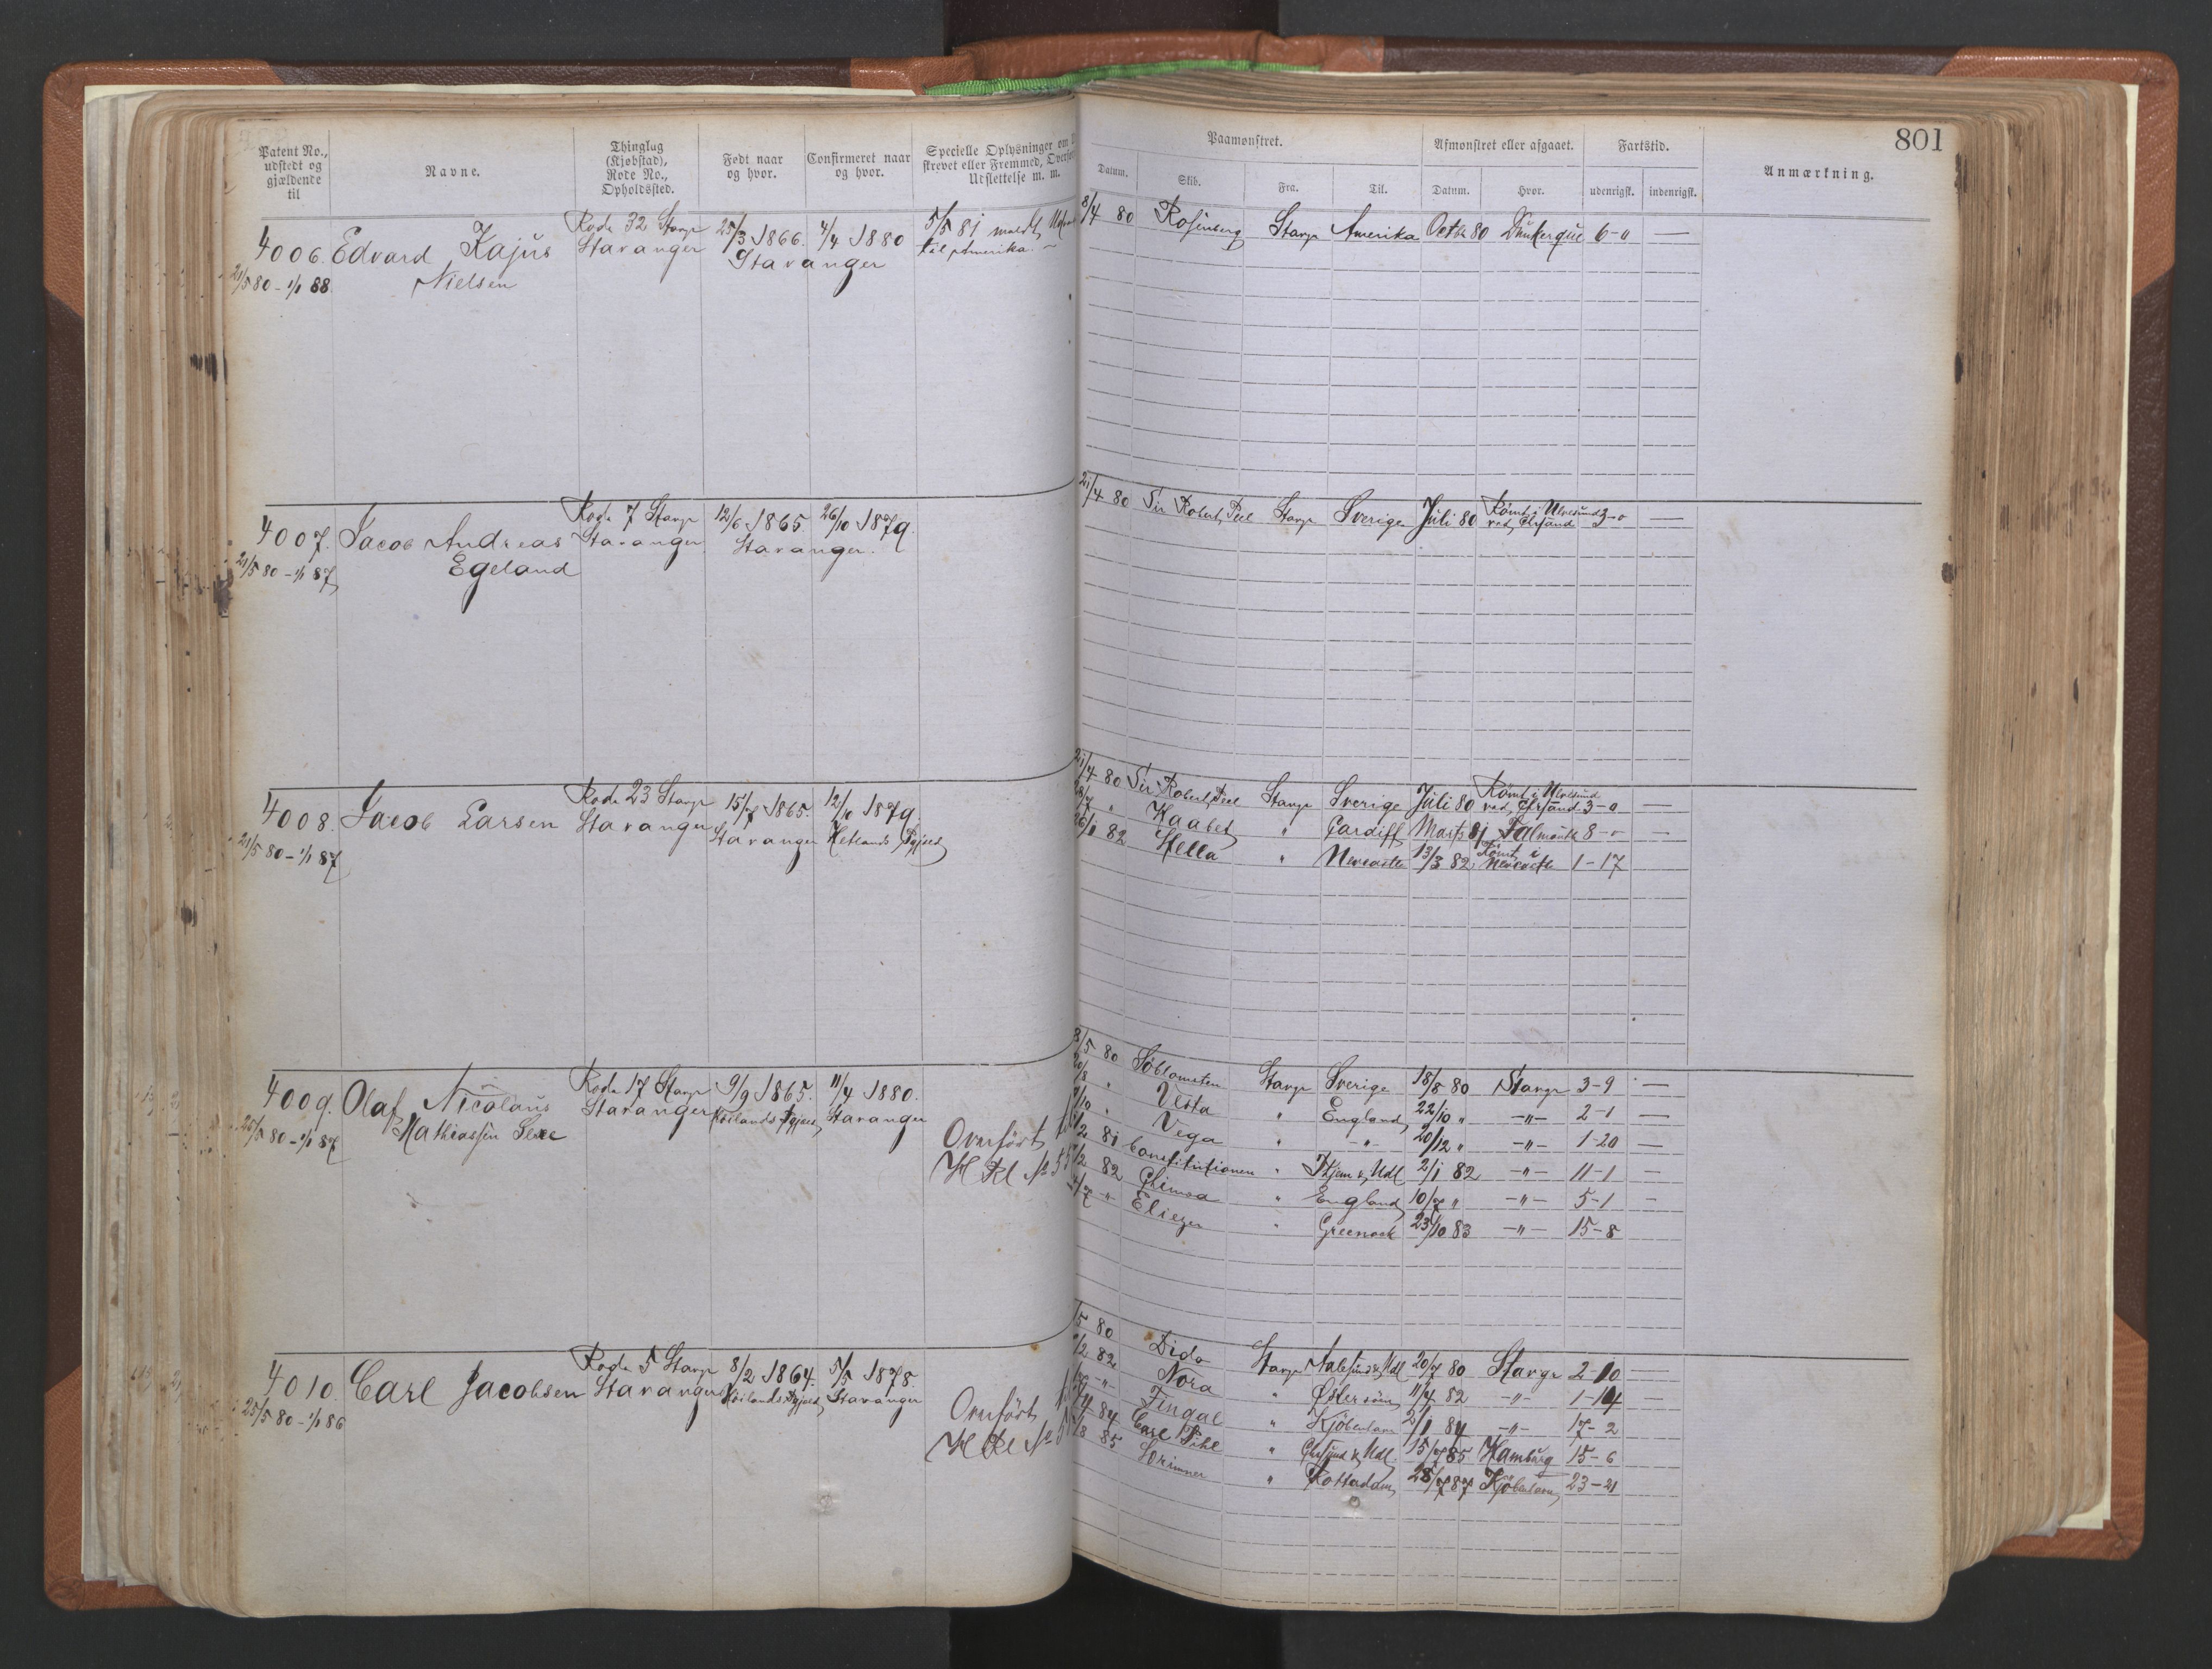 801
Patent No., udstedt og gjældende til
Navne.
Thinglag (Kjøbstad), Rode No., Opholdssted.
Født naar og hvor.
Confirmeret naar og hvor.
Specielle Oplysninger om
skrevet eller Fremmed,
Udslettelse m. m.
Paamønstret.
Afmønstret eller afgaaet.
Fartstid.
Anmærkning.
Datum. Skib. Fra. Til. Datum. Hvor. udenrigsk. indenrigsk.
4006. Edvard Kajus Nielsen
21/5 80 - 1/1 88
Rode 32 Stavgr Stavanger
25/3 1866. 4/4 1880
Stavanger
5/5 81 meldt
til Amerika.
8/4 80 Rosenberg Stavgr Amerika Octbr 80 Dunkerque 6-"
4007. Jacob Andreas Egeland
21/5 80 - 1/1 87
Rode 7 Stavgr Stavanger
12/6 1865. 26/10 1879.
Stavanger.
21/4 80 Sir Robert Peel Stavgr Sverige Juli 80 Rømt i Ulvesund ved Chrsand 3-0
4008. Jacob Larsen
21/5 80 - 1/1 87
Rode 23 Stavgr Stavanger
15/7 1865. Stavanger
12/10 1879. Hetlands Pgjæld
21/4 80 Sir Robert Peel Stavgr Sverige Juli 80 Rømt i Ulvesund ved Chrsand 3-0
" Haabet " Cardiff Marts 81 Falmouth 8-"
26/1 82 Hella " Newcastle 13/3 82 Rømt i Newcastle 1-17
4009. Olaf Nicolaus Mathiassen
25/5 80 - 1/1 87
Rode 17 Stavgr Stavanger
9/9 1865. Høilands Pgjæld
11/4 1880. Stavanger
Overført
H Rl No
8/5 80 Söblomsten Stavgr Sverige 18/8 80 Stavgr 3-9
" Vesta " England 22/10 " -"- 2-1
" Vega " -"- 20/12 " -"- 1-20
81 Constitutionen " Thjem & Udl 2/1 82 -"- 11-1
82 " England 10/7 " -"- 5-1
" Eliezer " Greenock 23/10 83 -"- 15-8
4010. Carl Jacobsen
25/5 80 - 1/1 86
Rode 5 Stavgr Stavanger
8/2 1864. Høilands Pgjæld
5/5 1878. Stavanger
Overført
H Rl No
80 Dido Stavgr Aalesund & Udl 20/7 80 Stavgr 2-10
82 Nora " Østersøen 11/4 82 -"- 1-14
-"- Fingal " Kjöbenhavn 2/1 84 -"- 17-2
84 Carl Pihl " Chrsund & Udl. 15/7 85 Hamburg 15-6
85 " Rotterdam 28/7 87 Kjöbenhavn 23-21